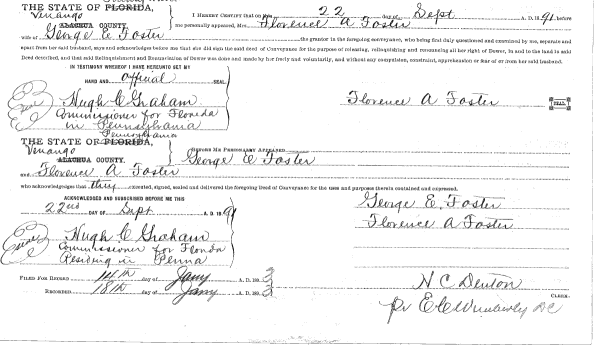 THE STATE OF FLORIDA,
Venango
ALACHUA COUNTY.
I HEREBY CERTIFY that on this 22 day of Sept A. D. 1891, before
me personally appeared, Mrs. Florence A Foster
wife of George E. Foster the grantor in the foregoing conveyance, who being first duly questioned and examined by me, separate and
apart from her said husband, says and acknowledges before me that she did sign the said deed of Conveyance for the purpose of releasing, relinquishing and renouncing all her right of Dower, in and to the land in said
Deed described, and that said Relinquishment and Renunciation of Dower was done and made by her freely and voluntarily, and without any compulsion, constraint, apprehension or fear of or from her said husband.
IN TESTIMONY WHEREOF I HAVE HEREUNTO SET MY
HAND AND official SEAL
Hugh C Graham
Commissioner for Florida
in Pennsylvania
Florence A Foster
SEAL
Pennsylvania
THE STATE OF FLORIDA,
Venango
ALACHUA COUNTY.
BEFORE ME PERSONALLY APPEARED
George E Foster
and Florence A Foster
who acknowledges that they executed, signed, sealed and delivered the foregoing Deed of Conveyance for the uses and purposes therein contained and expressed.
ACKNOWLEDGED AND SUBSCRIBED BEFORE ME THIS
22nd DAY OF Sept A. D. 1891
Hugh C Graham
Commissioner for Florida
Residing in Penna
George E. Foster
Florence A Foster
FILED FOR RECORD 14th day of Jany A. D. 1893
RECORDED 18th day of Jany A. D. 1893
N C Denton
CLERK.
Pr E C Wimberly DC